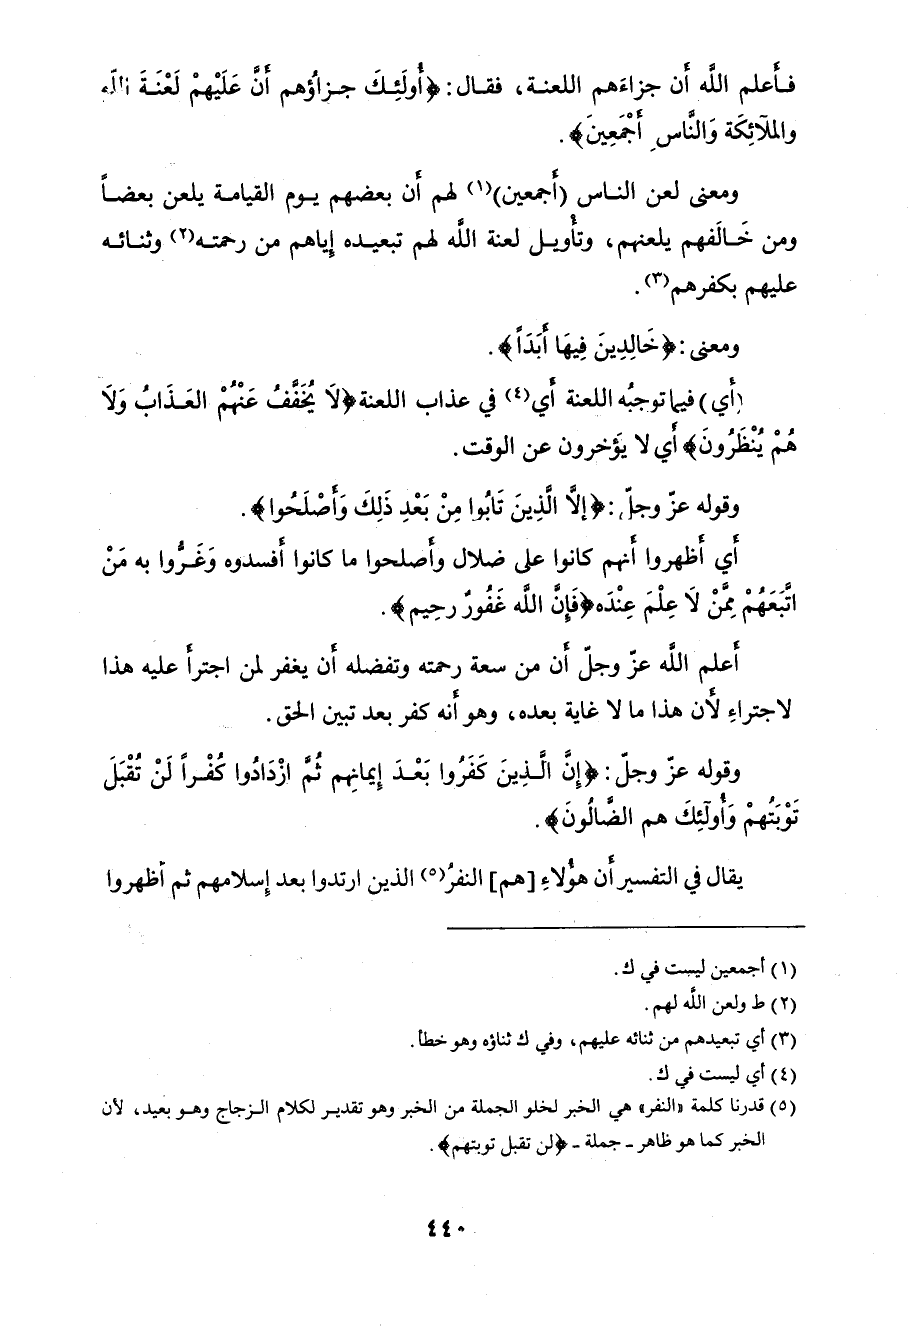 فأعلم اللَّه أن جزاءَهم اللعنة، فقال: ﴿أُولَئِكَ جزاؤهم أَنَّ عَلَيْهِمْ لَعْنَةَ اللّه
والملَآئِكَة وَالنَّاسِ أَجْمَعِينَ﴾.
ومعنى لعن الناس (أجمعين)(١) لهم أن بعضهم يوم القيامة يلعن بعضاً
ومن خَالَفهم يلعنهم، وتأويل لعنة اللَّه لهم تبعيده إياهم من رحمته(٢) وثنائه
عليهم بكفرهم(٣).
ومعنى: ﴿خَالِدِينَ فِيهَا أَبَدَاً﴾.
(أي) فيما توجبُه اللعنة أي(٤) في عذاب اللعنة ﴿لَا يُخَفَّفُ عَنْهُمْ العَذَابُ وَلَا
هُمْ يُنْظَرُونَ﴾ أي لا يَؤخرون عن الوقت.
وقوله عزّ وجلّ: ﴿إلَّا الَّذِينَ تَابُوا مِنْ بَعْدِ ذَلِكَ وَأَصْلَحُوا﴾.
أي أظهروا أنهم كانوا على ضلال وأصلحوا ما كانوا أفسدوه وَغَرُّوا به مَنْ
اتَّبَعَهُمْ مِمَّنْ لَا عِلْمَ عِنْدَه ﴿فَإِنَّ اللَّه غَفُورٌ رحِيم﴾.
أعلم اللَّه عزّ وجلّ أن من سعة رحمته وتفضله أن يغفر لمن اجترأ عليه هذا
لاجتراءِ لأن هذا ما لا غاية بعده، وهو أنه كفر بعد تبين الحق.
وقوله عزّ وجلّ: ﴿إِنَّ الَّذِينَ كَفَرُوا بَعْدَ إيمانِهم ثُمَّ ازْدَادُوا كُفْراً لَنْ تُقْبَلَ
تَوْبَتُهمْ وَأُولَآئِكَ هم الضَّالُونَ﴾.
يقال في التفسير أن هؤُلاءِ [هم] النفرُ(٥) الذين ارتدوا بعد إسلامهم ثم أظهروا
(١) أجمعين ليست في ك.
(٢) ط ولعن اللَّه لهم.
(٣) أي تبعيدهم من ثنائه عليهم، وفي ك ثناؤه وهو خطأ.
(٤) أي ليست في ك.
(٥) قدرنا كلمة «النفر» هي الخبر لخلو الجملة من الخبر وهو تقدير لكلام الزجاج وهو بعيد، لأن
الخبر كما هو ظاهر ـ جملة ـ ﴿لن تقبل توبتهم﴾.
٤٤٠